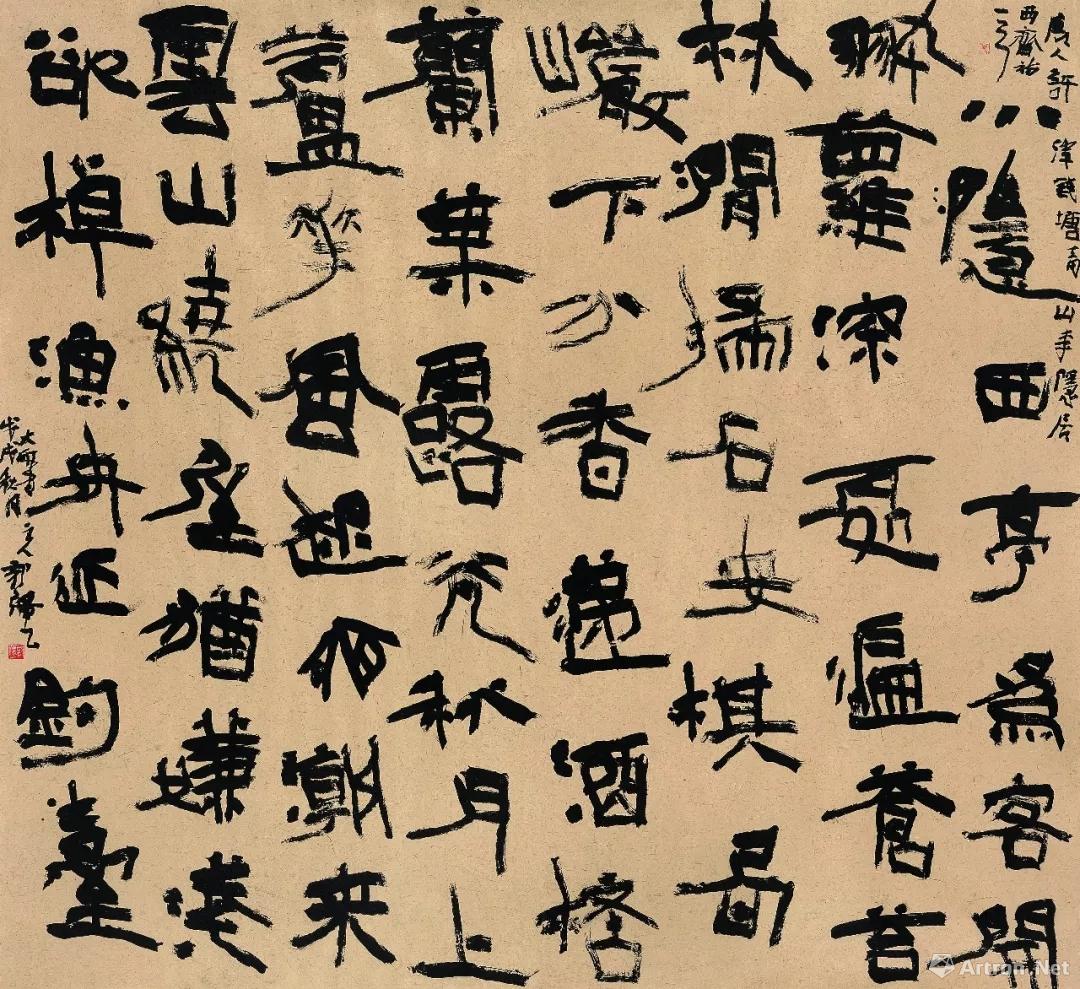 唐人許渾題青山李隱居
西齋詩
一首
小隱西亭爲客開
翠蘿深處遍蒼苔
林澗掃石安棋局
巖下分香遞酒桮
蘭葉露光秋月上
蘆花風起夜潮來
雲山繞屋猶嫌淺
欲棹漁舟近釣臺
戊戌秋月
Artron.Net